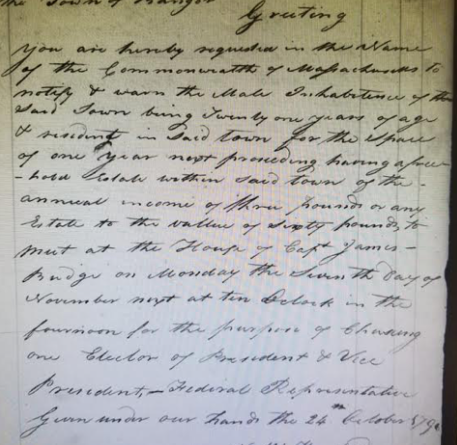 the Town of Bangor
Greeting
You are hereby requested in the Name
of the Commonwealth of Massachusetts to
notify & warn the Male Inhabitence of the
Said Town being Twenty one years of age
& residing in Said town for the Space
of one Year next preseeding having a free
-hold Estate within said town of the -
annual income of three pounds or any
Estate to the vallue of Sixty pounds to
meet at the House of Capt James -
Budge on Monday the Seventh day of
November next at ten Oclock in the
fournoon for the purpose of Chusing
one Elector of President & Vice
President, - Federal Representative
Given under our hands the 24th October